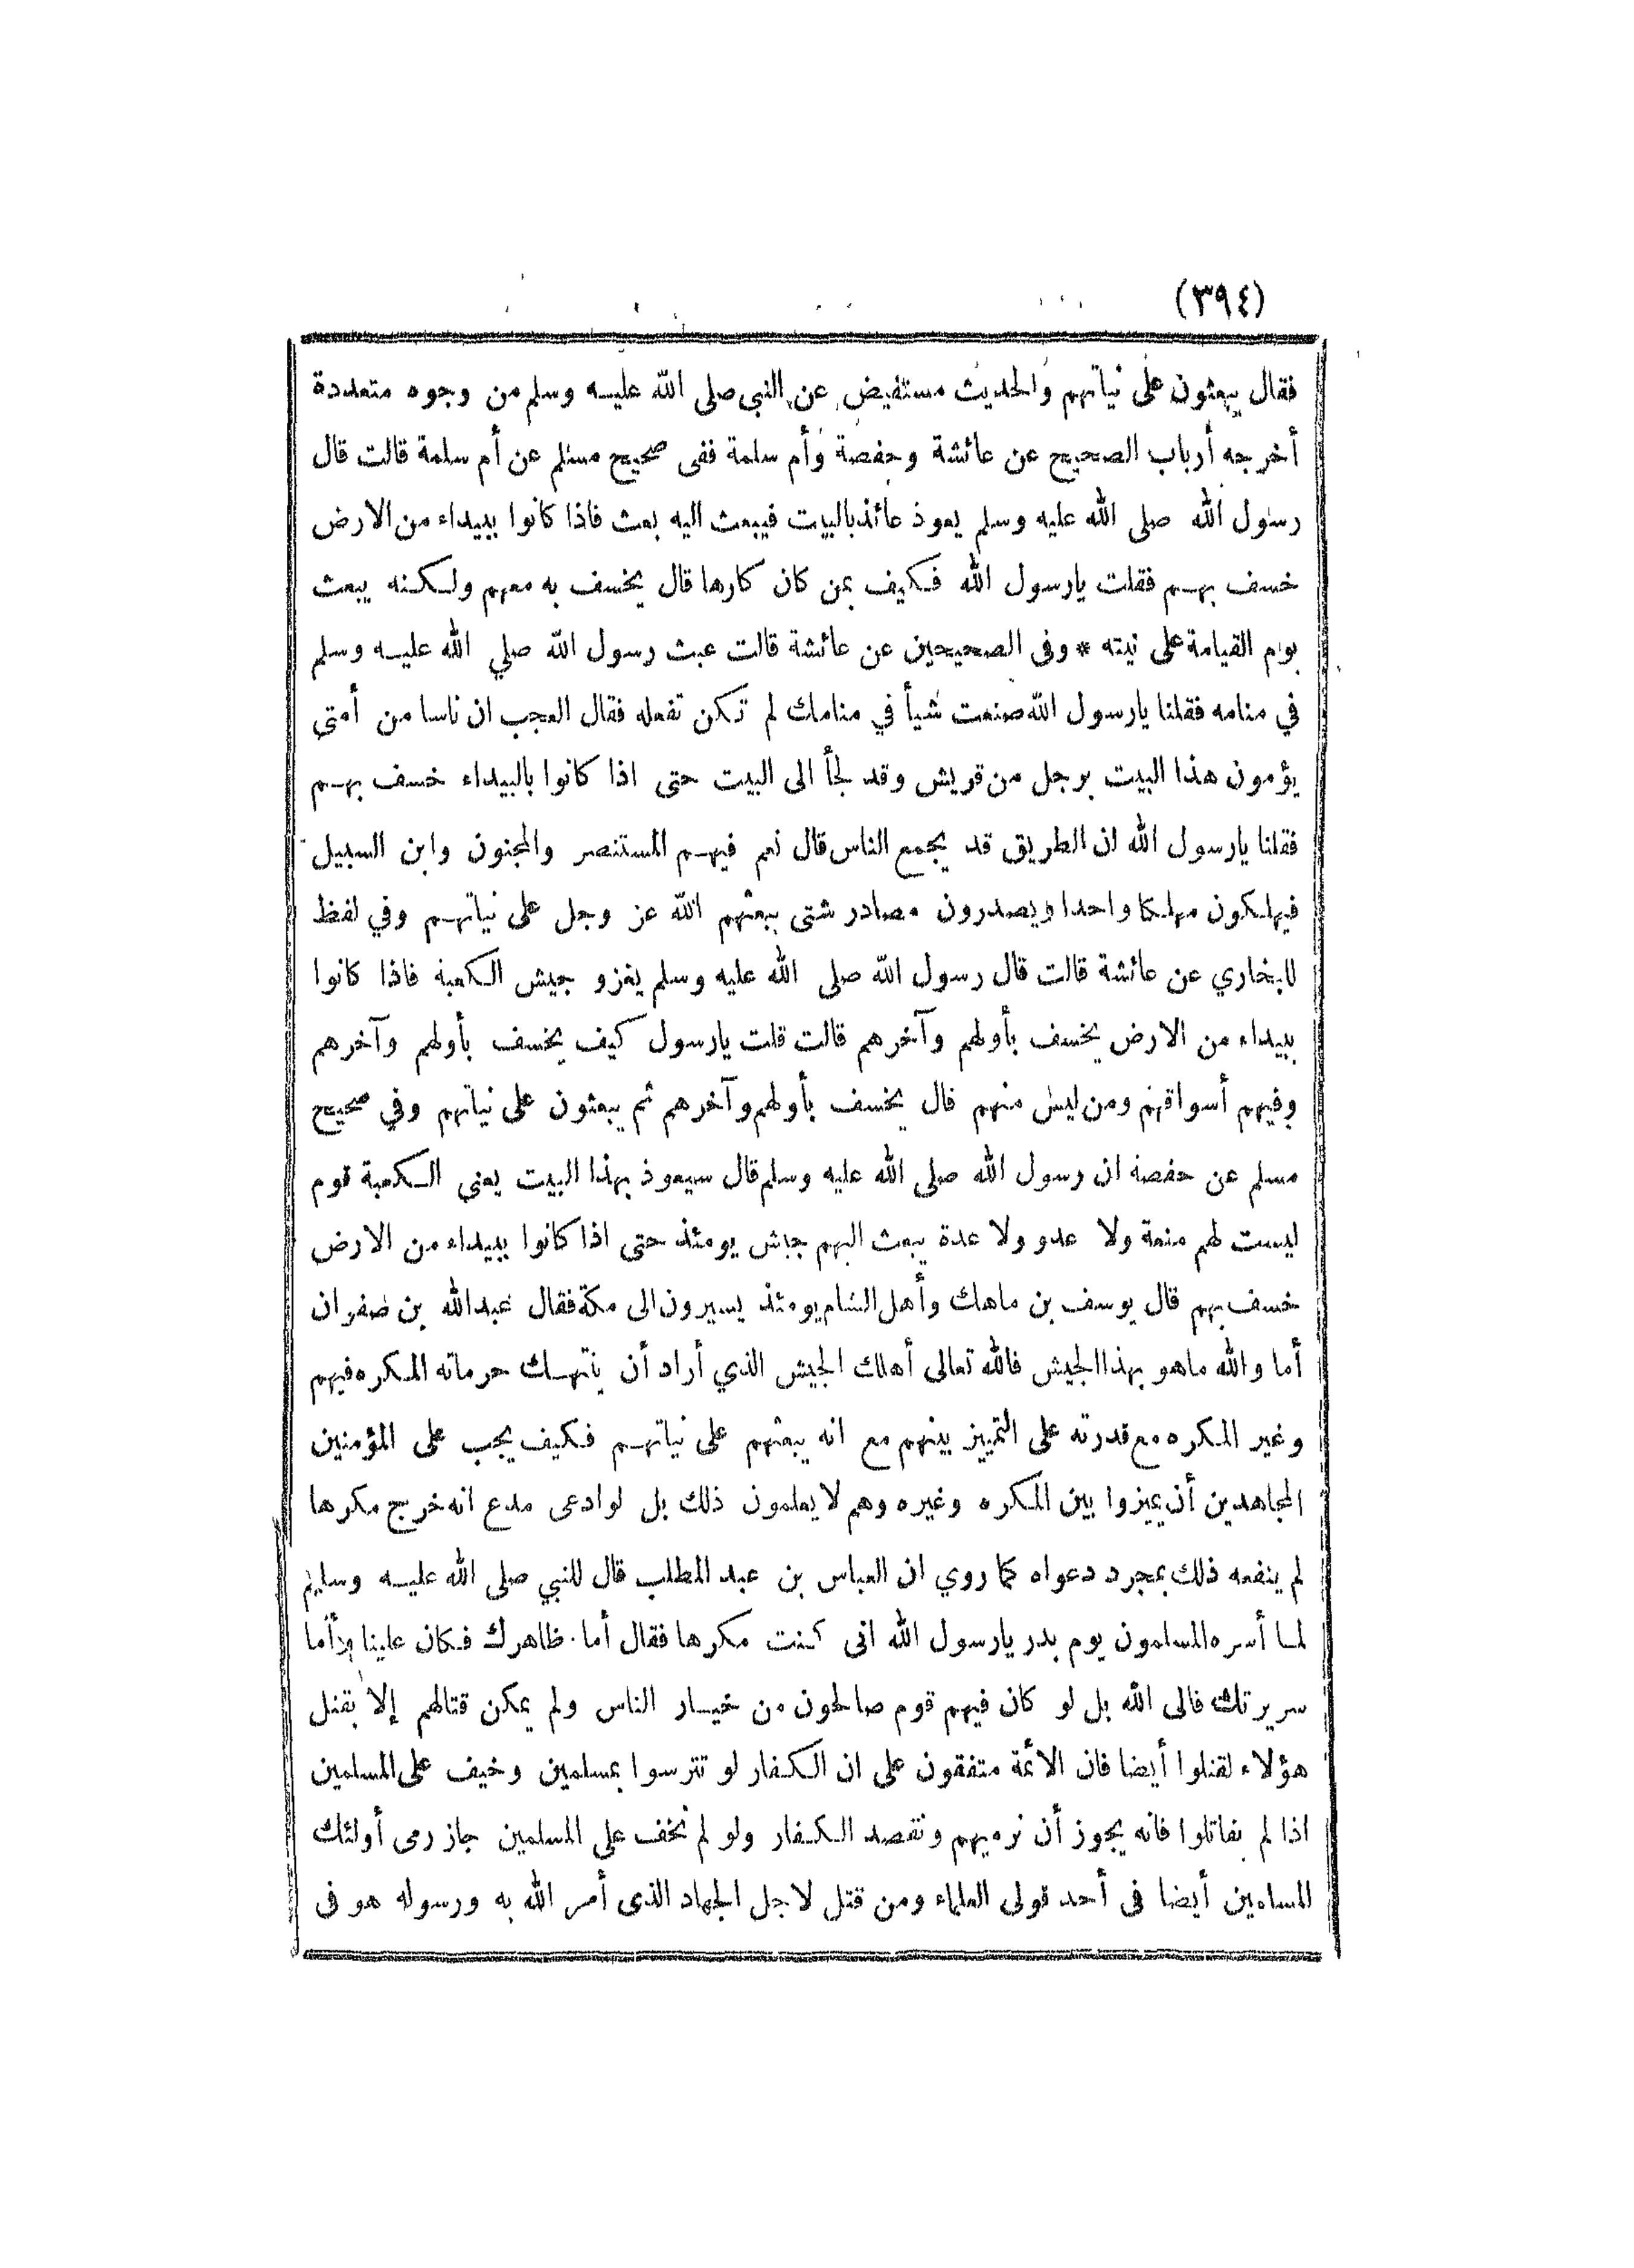 (٣٩٤)
فقال يبعثون على نياتهم والحديث مستفيض عن النبى صلى الله عليه وسلم من وجوه متعددة
أخرجه أرباب الصحيح عن عائشة وحفصة وأم سلمة ففى صحيح مسلم عن أم سلمة قالت قال
رسول الله صلى الله عليه وسلم يعوذ عائذ بالبيت فيبعث اليه بعث فاذا كانوا ببيداء من الارض
خسف بهم فقلت يارسول الله فكيف بمن كان كارها قال يخسف به معهم ولكنه يبعث
يوم القيامة على نيته * وفى الصحيحين عن عائشة قالت عبث رسول الله صلي الله عليه وسلم
في منامه فقلنا يارسول الله صنعت شيأ في منامك لم تكن تفعله فقال العجب ان ناسا من أمتي
يؤمون هذا البيت برجل من قريش وقد لجأ الى البيت حتى اذا كانوا بالبيداء خسف بهم
فقلنا يارسول الله ان الطريق قد يجمع الناس قال نعم فيهم المستنصر والمجنون وابن السبيل
فيهلكون مهلكا واحدا ويصدرون مصادر شتى يبعثهم الله عز وجل على نياتهم وفي لفظ
للبخاري عن عائشة قالت قال رسول الله صلى الله عليه وسلم يغزو جيش الكعبة فاذا كانوا
ببيداء من الارض يخسف بأولهم وآخرهم قالت قلت يارسول كيف يخسف بأولهم وآخرهم
وفيهم أسواقهم ومن ليس منهم قال يخسف بأولهم وآخرهم ثم يبعثون على نياتهم وفي صحيح
مسلم عن حفصة ان رسول الله صلى الله عليه وسلم قال سيعوذ بهذا البيت يعنى الكعبة قوم
ليست لهم منعة ولا عدو ولا عدة يبعث اليهم جيش يومئذ حتى اذا كانوا ببيداء من الارض
خسف بهم قال يوسف بن ماهك وأهل الشام يومئذ يسيرون الى مكة فقال عبدالله بن صفوان
أما والله ماهو بهذا الجيش فالله تعالى أهلك الجيش الذي أراد أن ينتهك حرماته المكره فيهم
وغير المكره مع قدرته على التمييز بينهم مع انه يبعثهم على نياتهم فكيف يجب على المؤمنين
المجاهدين أن يميزوا بين المكره وغيره وهم لا يعلمون ذلك بل لو ادعى مدع انه خرج مكرها
لم ينفعه ذلك بمجرد دعواه كما روي ان العباس بن عبد المطلب قال للنبي صلى الله عليه وسلم
لما أسره المسلمون يوم بدر يارسول الله انى كنت مكرها فقال أما ظاهرك فكان علينا وأما
سريرتك فالى الله بل لو كان فيهم قوم صالحون من خيار الناس ولم يمكن قتالهم إلا بقتل
هؤلاء لقتلوا أيضا فان الائمة متفقون على ان الكفار لو تترسوا بمسلمين وخيف على المسلمين
اذا لم يقاتلوا فانه يجوز أن نرميهم ونقصد الكفار ولو لم نخف على المسلمين جاز رمى أولئك
المسلمين أيضا فى أحد قولى العلماء ومن قتل لاجل الجهاد الذى أمر الله به ورسوله هو فى